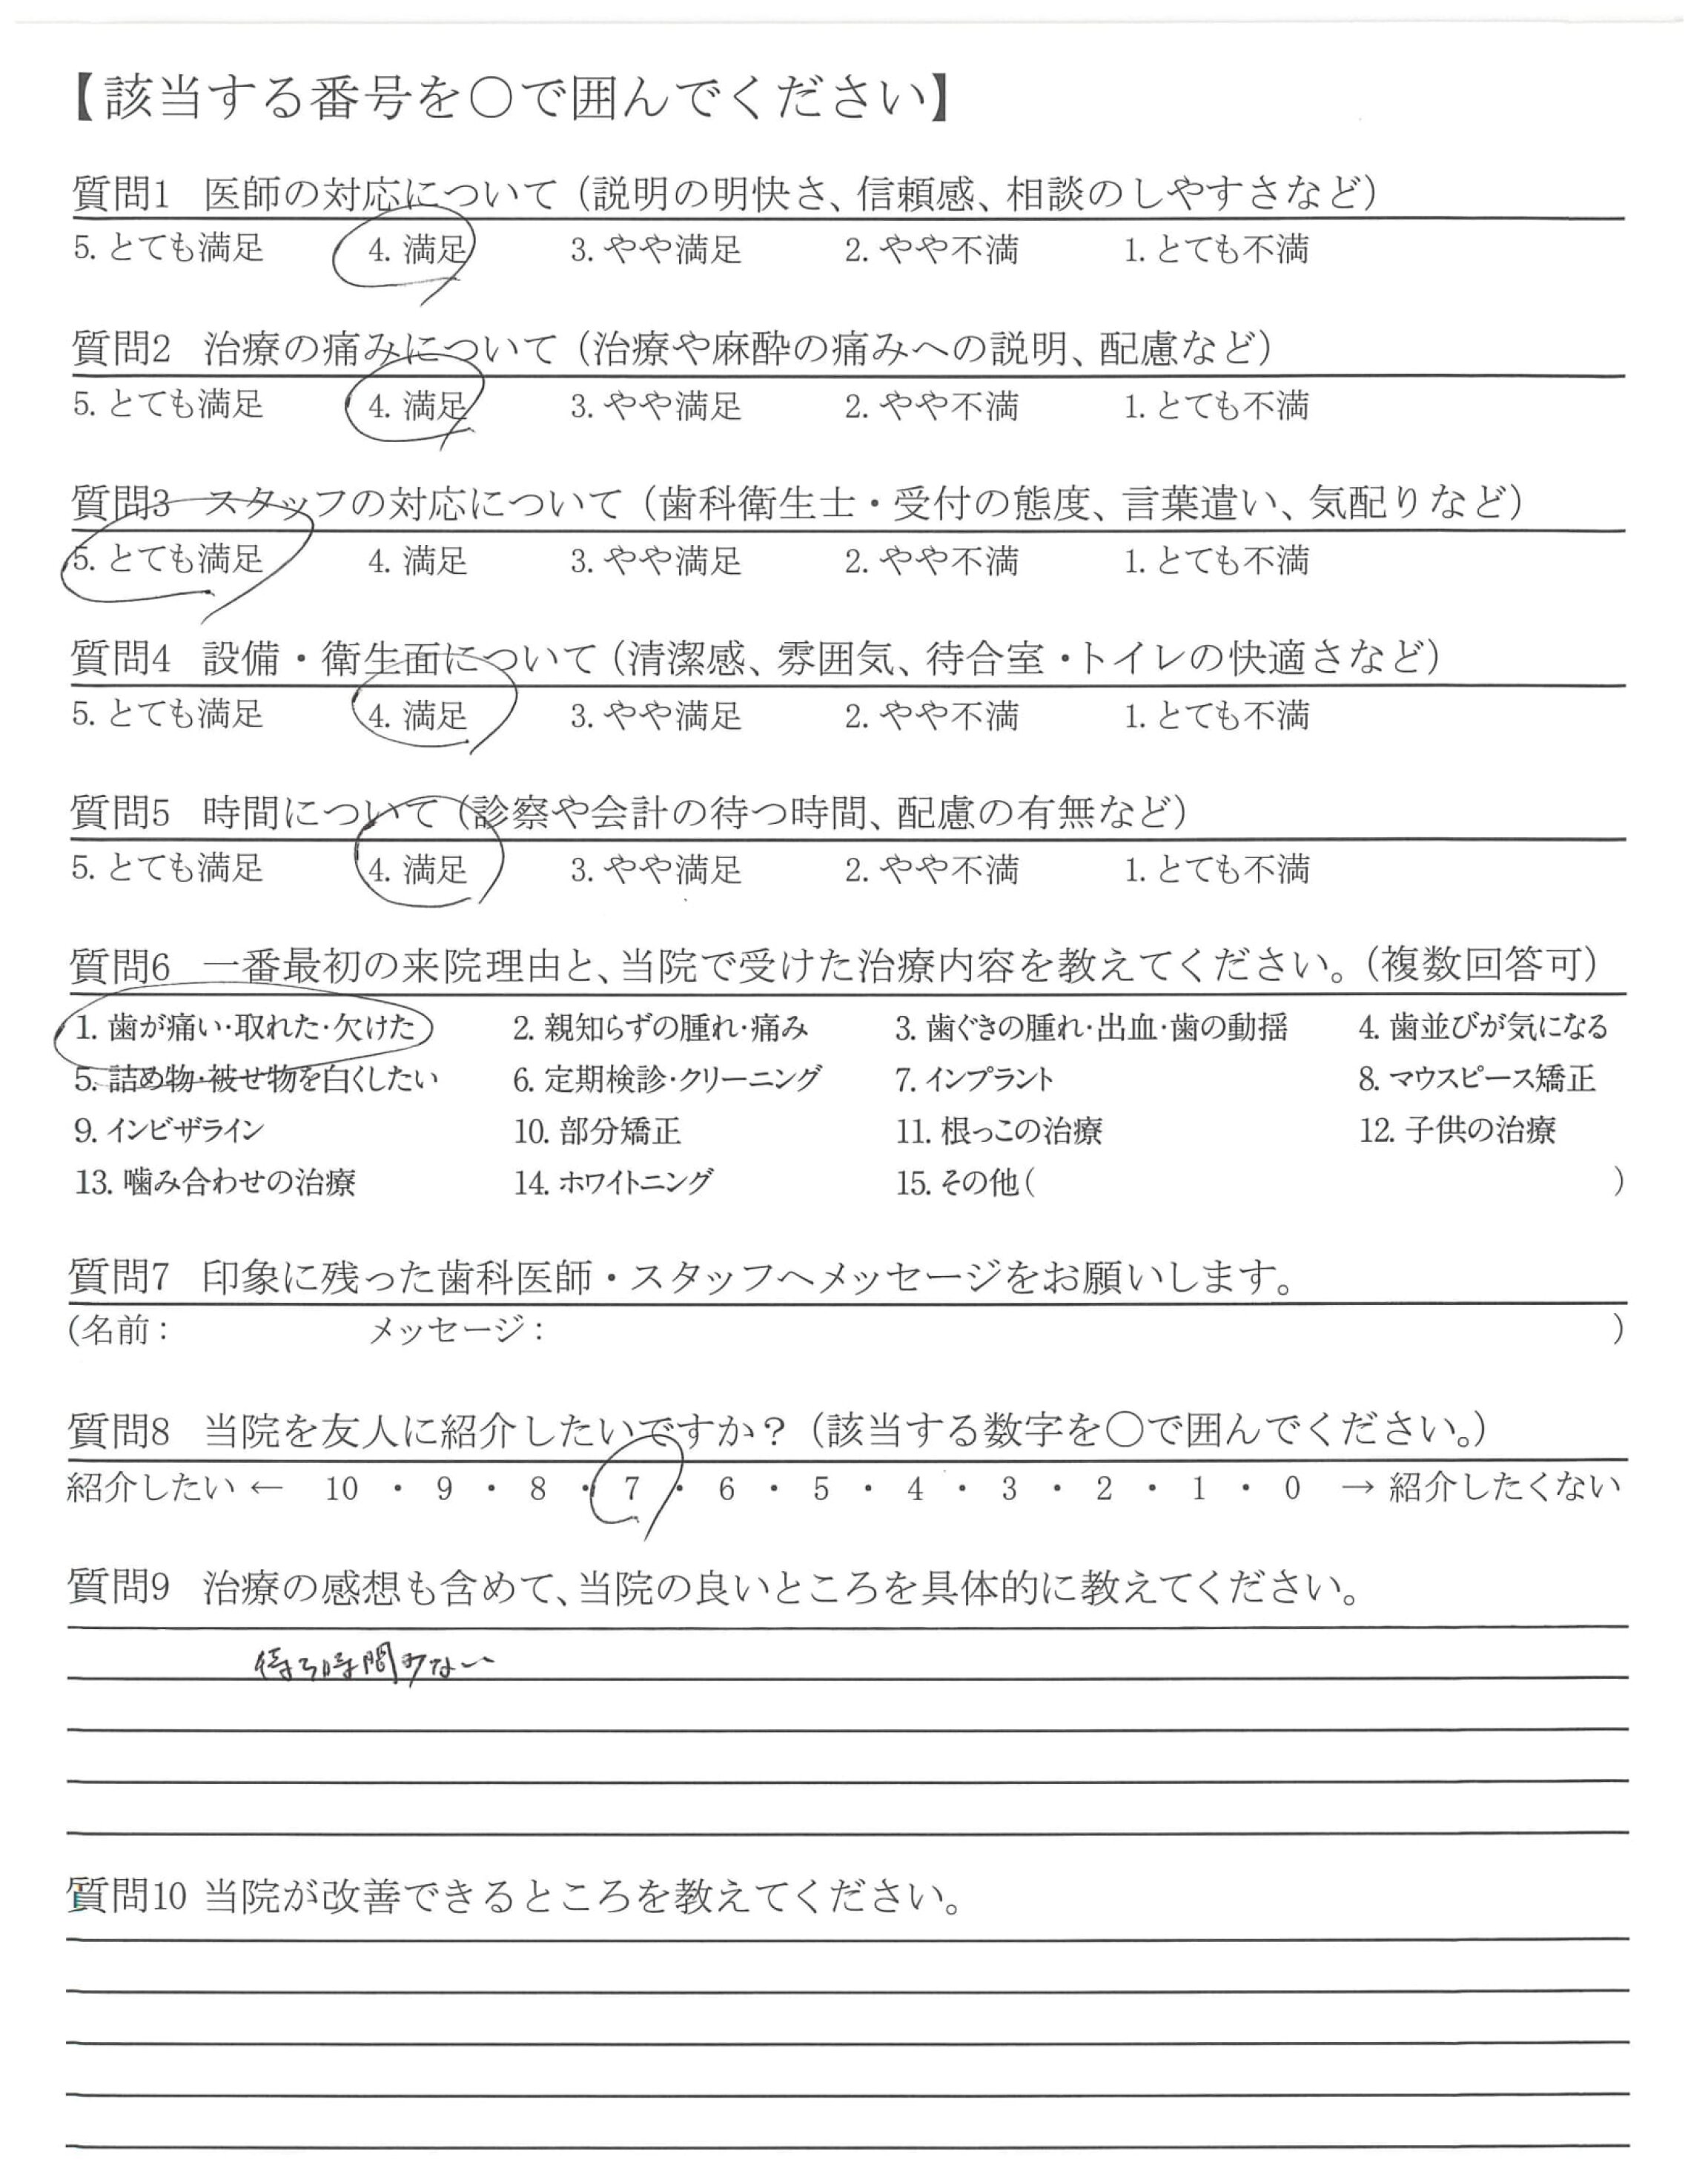 【該当する番号を○で囲んでください】
質問1 医師の対応について（説明の明快さ、信頼感、相談のしやすさなど）
5. とても満足 4. 満足 3. やや満足 2. やや不満 1. とても不満
質問2 治療の痛みについて（治療や麻酔の痛みへの説明、配慮など）
5. とても満足 4. 満足 3. やや満足 2. やや不満 1. とても不満
質問3 スタッフの対応について（歯科衛生士・受付の態度、言葉遣い、気配りなど）
5. とても満足 4. 満足 3. やや満足 2. やや不満 1. とても不満
質問4 設備・衛生面について（清潔感、雰囲気、待合室・トイレの快適さなど）
5. とても満足 4. 満足 3. やや満足 2. やや不満 1. とても不満
質問5 時間について（診察や会計の待つ時間、配慮の有無など）
5. とても満足 4. 満足 3. やや満足 2. やや不満 1. とても不満
質問6 一番最初の来院理由と、当院で受けた治療内容を教えてください。（複数回答可）
1. 歯が痛い・取れた・欠けた 2. 親知らずの腫れ・痛み 3. 歯ぐきの腫れ・出血・歯の動揺 4. 歯並びが気になる
5. 詰め物・被せ物を白くしたい 6. 定期検診・クリーニング 7. インプラント 8. マウスピース矯正
9. インビザライン 10. 部分矯正 11. 根っこの治療 12. 子供の治療
13. 噛み合わせの治療 14. ホワイトニング 15. その他( )
質問7 印象に残った歯科医師・スタッフへメッセージをお願いします。
(名前: メッセージ: )
質問8 当院を友人に紹介したいですか？（該当する数字を○で囲んでください。）
紹介したい ← 10 ・ 9 ・ 8 ・ 7 ・ 6 ・ 5 ・ 4 ・ 3 ・ 2 ・ 1 ・ 0 → 紹介したくない
質問9 治療の感想も含めて、当院の良いところを具体的に教えてください。
待ち時間少ない
質問10 当院が改善できるところを教えてください。